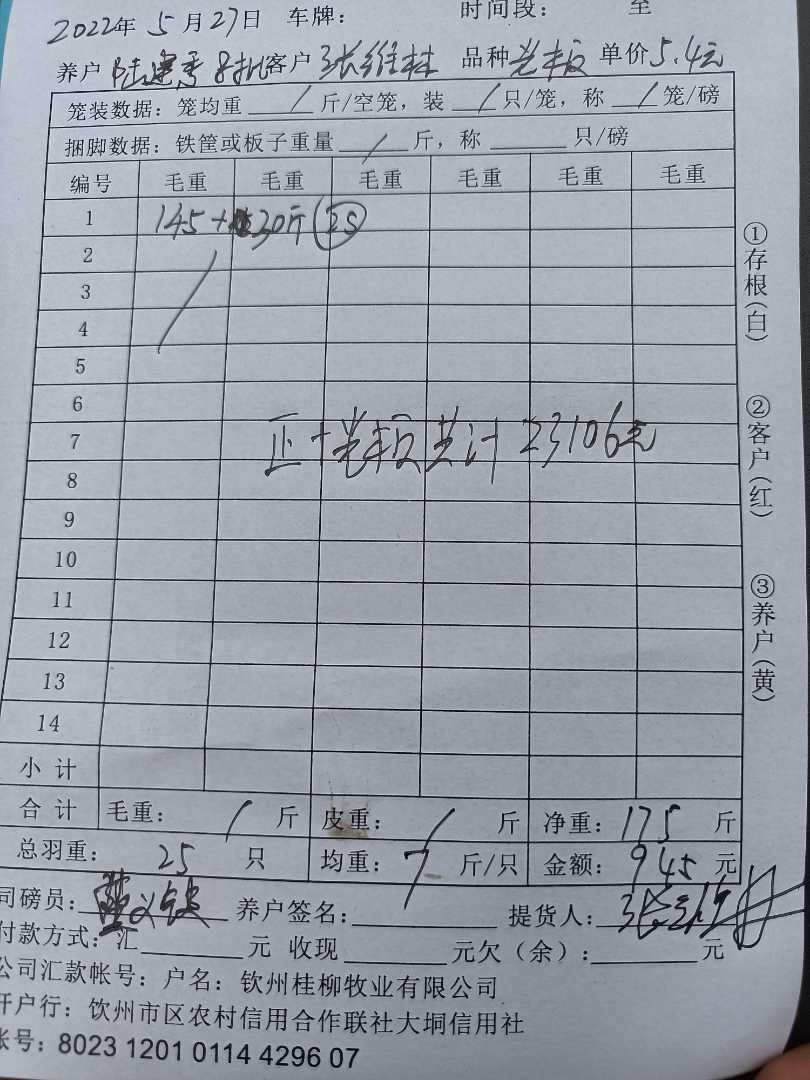 2022年 5 月 27日 车牌： 时间段： 至
养户 陆建秀 8批 客户 张维林 品种 光丰板 单价 5.4元
笼装数据：笼均重 / 斤/空笼，装 / 只/笼，称 / 笼/磅
捆脚数据：铁筐或板子重量 / 斤，称 只/磅
编号 毛重 毛重 毛重 毛重 毛重 毛重
1 145+30斤 (25)
2
3
4
5
6
7 正+光丰板共计 23106元
8
9
10
11
12
13
14
小计
合计 毛重： / 斤 皮重： / 斤 净重：175 斤
总羽重： 25 只 均重：7 斤/只 金额：945 元
司磅员： 养户签名： 提货人：
付款方式：汇 元 收现 元欠（余）： 元
公司汇款帐号：户名：钦州桂柳牧业有限公司
开户行：钦州市区农村信用合作联社大垌信用社
帐号：8023 1201 0114 4296 07
①存根（白）
②客户（红）
③养户（黄）